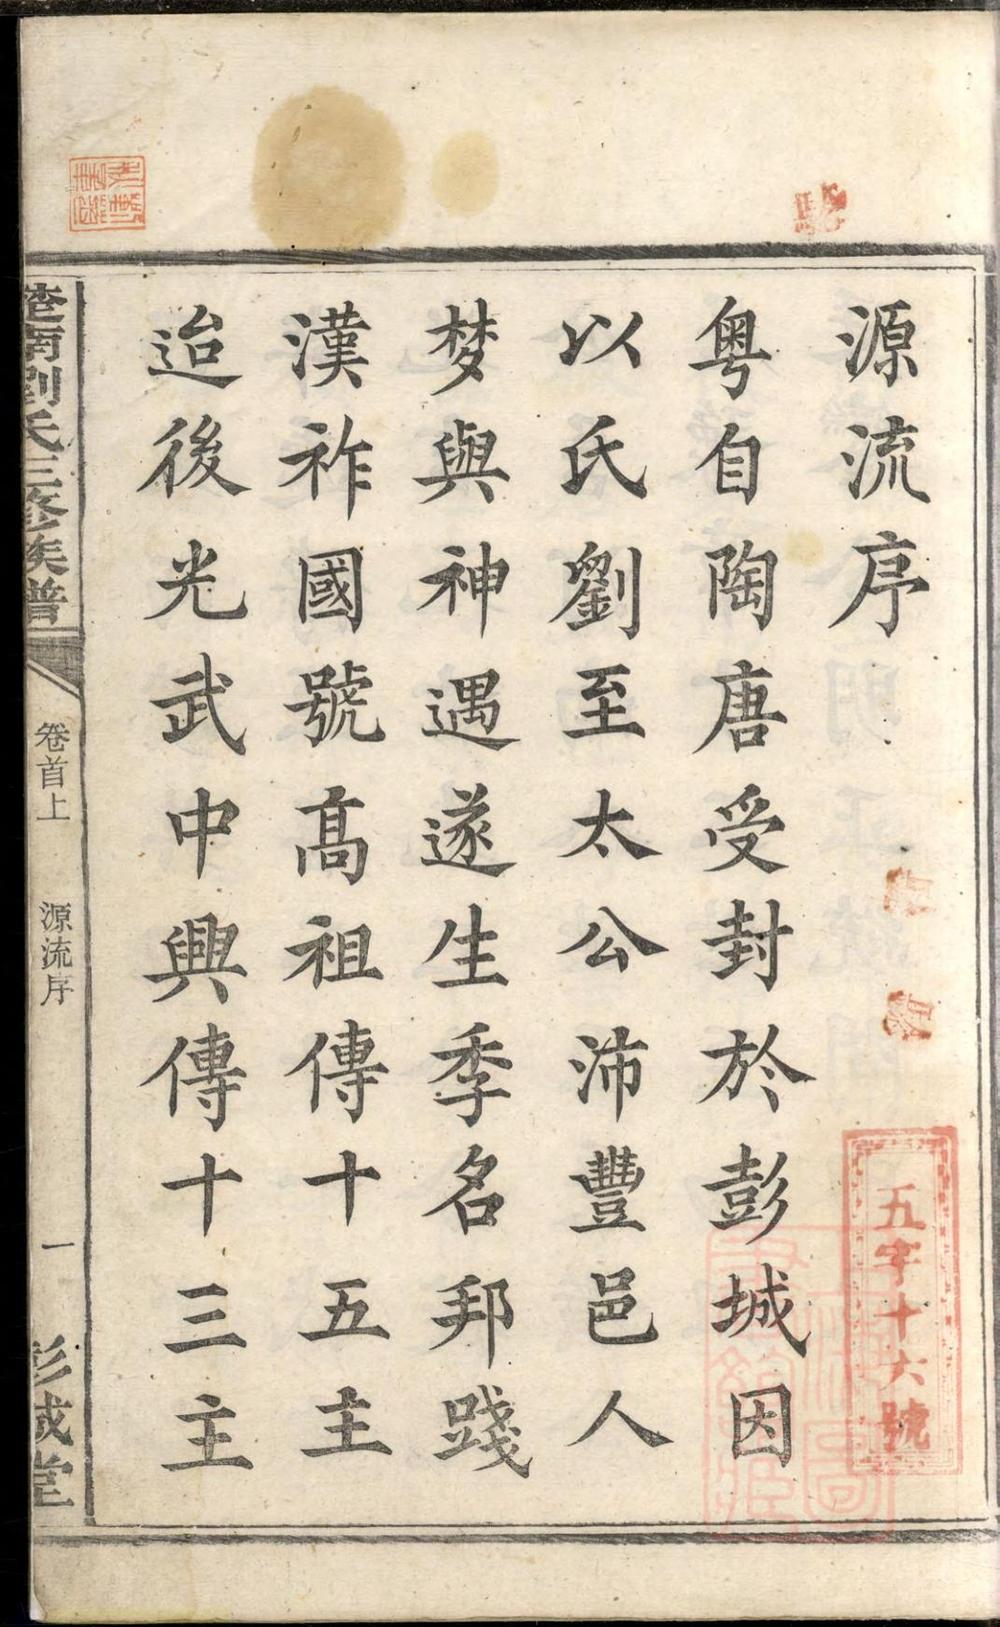 源流序
粤自陶唐受封於彭城因
以氏劉至太公沛豐邑人
梦與神遇遂生季名邦踐
漢祚國號髙祖傳十五主
迨後光武中興傳十三主
楚南劉氏三修族譜
卷首上
源流序
一
彭城堂
五字十六號